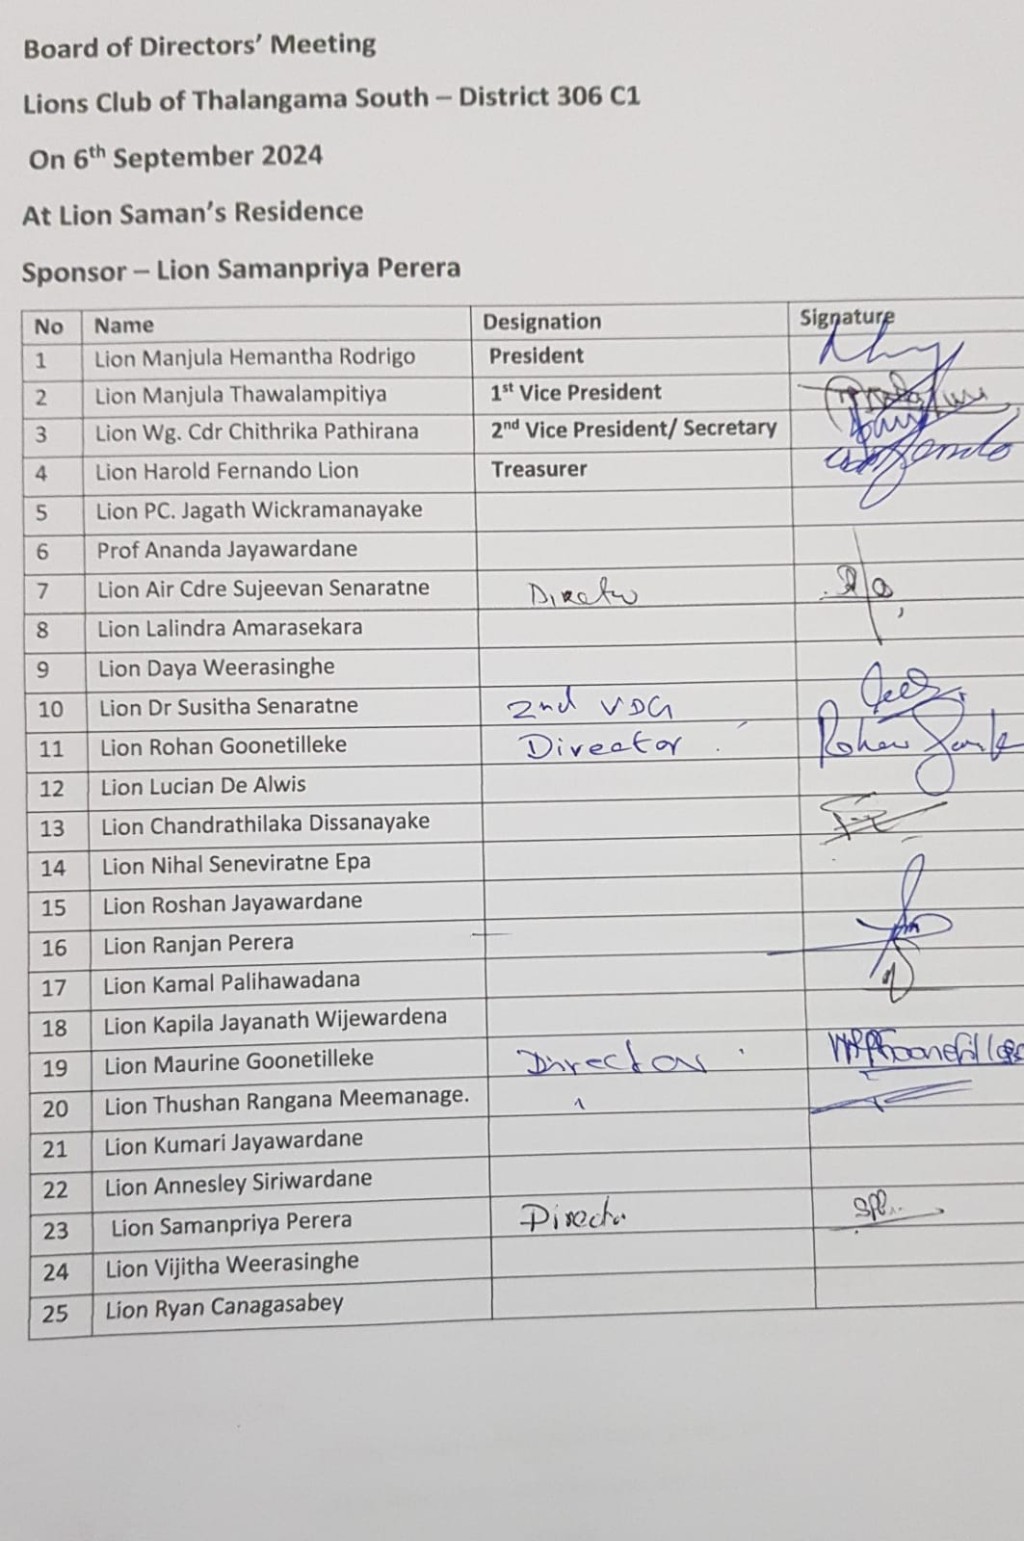 Board of Directors' Meeting
Lions Club of Thalangama South – District 306 C1
On 6th September 2024
At Lion Saman's Residence
Sponsor – Lion Samanpriya Perera
No Name Designation Signature
1 Lion Manjula Hemantha Rodrigo President
2 Lion Manjula Thawalampitiya 1st Vice President
3 Lion Wg. Cdr Chithrika Pathirana 2nd Vice President/ Secretary
4 Lion Harold Fernando Lion Treasurer
5 Lion PC. Jagath Wickramanayake
6 Prof Ananda Jayawardane
7 Lion Air Cdre Sujeevan Senaratne Director
8 Lion Lalindra Amarasekara
9 Lion Daya Weerasinghe
10 Lion Dr Susitha Senaratne 2nd VDG
11 Lion Rohan Goonetilleke Director Rohan
12 Lion Lucian De Alwis
13 Lion Chandrathilaka Dissanayake
14 Lion Nihal Seneviratne Epa
15 Lion Roshan Jayawardane
16 Lion Ranjan Perera
17 Lion Kamal Palihawadana
18 Lion Kapila Jayanath Wijewardena
19 Lion Maurine Goonetilleke Director
20 Lion Thushan Rangana Meemanage.
21 Lion Kumari Jayawardane
22 Lion Annesley Siriwardane
23 Lion Samanpriya Perera Director
24 Lion Vijitha Weerasinghe
25 Lion Ryan Canagasabey